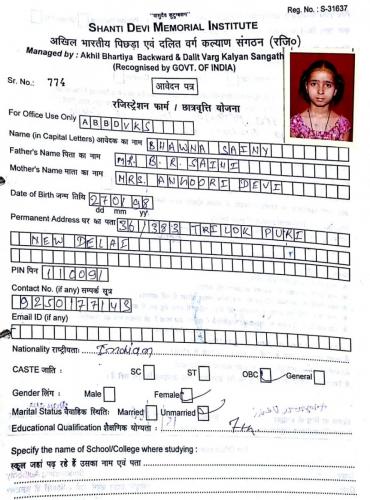 "वसुधैव कुटुम्बकम्"
Reg. No. : S-31637
SHANTI DEVI MEMORIAL INSTITUTE
अखिल भारतीय पिछड़ा एवं दलित वर्ग कल्याण संगठन (रजि०)
Managed by : Akhil Bhartiya Backward & Dalit Varg Kalyan Sangath
(Recognised by GOVT. OF INDIA)
Sr. No.: 774
आवेदन पत्र
रजिस्ट्रेशन फार्म / छात्रवृत्ति योजना
For Office Use Only ABBDVKS
Name (in Capital Letters) आवेदक का नाम BHAWNA SAINY
Father's Name पिता का नाम MR. B.R. SAINI
Mother's Name माता का नाम MRS. ANGOORI DEVI
Date of Birth जन्म तिथि 270198
dd mm yy
Permanent Address घर का पता 36/383 TRILOK PURI
NEW DELAI
PIN पिन 110091
Contact No. (if any) सम्पर्क सूत्र
9250177143
Email ID (if any)
Nationality राष्ट्रीयता:
CASTE जाति : SC ST OBC General
Gender लिंग : Male Female
Marital Status वैवाहिक स्थिति: Married Unmarried
Educational Qualification शैक्षणिक योग्यता :
Specify the name of School/College where studying :
स्कूल जहां पढ़ रहे हैं उसका नाम एवं पता